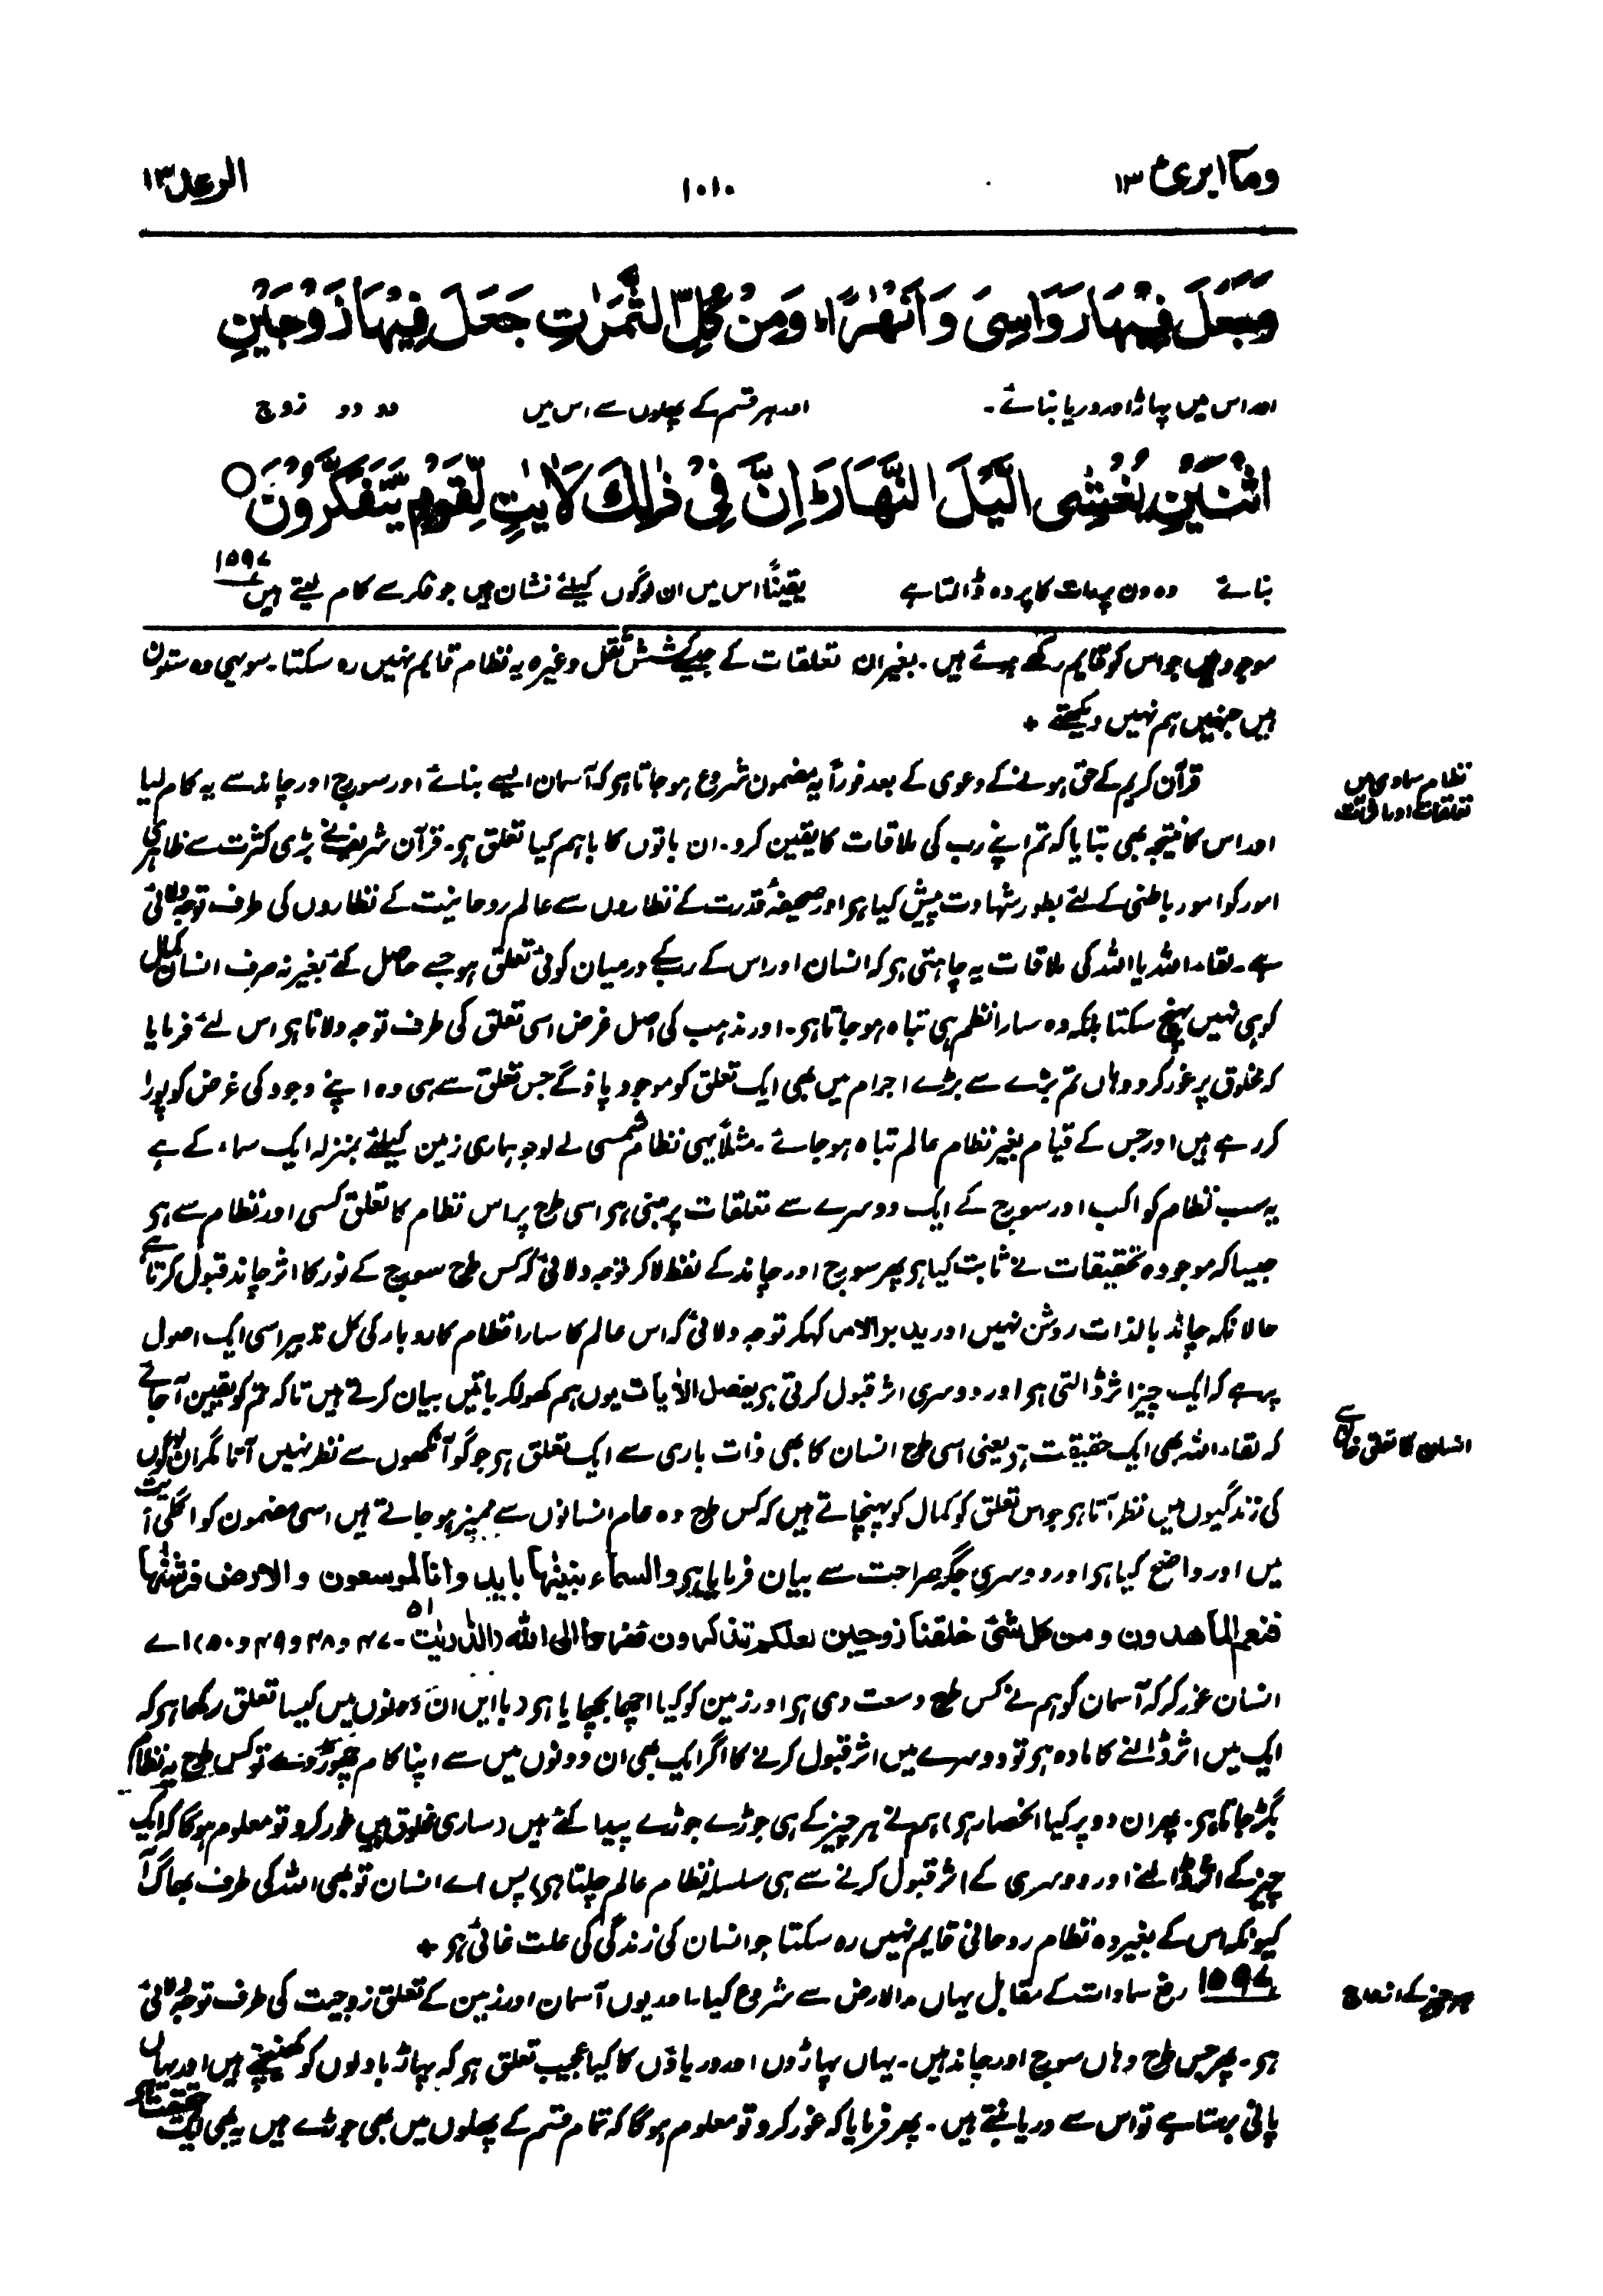 ومآ ابرئ ۱۳
۱۰۱۰
الرعد ۱۳
وَجَعَلَ فِيْهَا رَوَاسِىَ وَاَنْهٰرًا ؕ وَمِنْ كُلِّ الثَّمَرٰتِ جَعَلَ فِيْهَا زَوْجَيْنِ
اور اس میں پہاڑ اور دریا بنائے۔ اور ہر قسم کے پھلوں سے اس میں دو دو زوج
اثْنَيْنِ يُغْشِى الَّيْلَ النَّهَارَ ؕ اِنَّ فِىْ ذٰلِكَ لَاٰيٰتٍ لِّقَوْمٍ يَّتَفَكَّرُوْنَ ○
بنائے وہ دن پر رات کا پردہ ڈالتا ہے یقیناً اس میں ان لوگوں کیلئے نشان ہیں جو فکر سے کام لیتے ہیں ۱۵۹۷
موجود ہیں جو اس کو قایم رکھے ہوئے ہیں۔ بغیر ان تعلقات کے جیسے کشش ثقل وغیرہ یہ نظام قایم نہیں رہ سکتا۔ سو یہی وہ ستون
ہیں جنہیں ہم نہیں دیکھتے +
نظام سماوی میں
تعلقات اور
قرآن کریم کے حق ہونے کے دعوی کے بعد فوراً یہ مضمون شروع ہو جاتا ہو کہ آسمان ایسے بنائے اور سورج اور چاند سے یہ کام لیا
اور اس کا نتیجہ بھی بتایا کہ تم اپنے رب کی ملاقات کا یقین کرو۔ ان باتوں کا باہم کیا تعلق ہو۔ قرآن شریف نے بڑی کثرت سے ظاہری
امور کو امور باطنی کے لئے بطور شہادت پیش کیا ہو اور صحیفۂ قدرت کے نظاروں سے عالم روحانیت کے نظاروں کی طرف توجہ دلائی
ہے۔ لقاء اللہ یا اللہ کی ملاقات یہ چاہتی ہو کہ انسان اور اس کے رب کے درمیان کوئی تعلق ہو جسے حاصل کئے بغیر نہ صرف انسان کمال
کو ہی نہیں پہنچ سکتا بلکہ وہ سارا نظم ہی تباہ ہو جاتا ہو۔ اور مذہب کی اصل غرض اسی تعلق کی طرف توجہ دلانا ہو اس لئے فرمایا
کہ مخلوق پر غور کرو وہاں تم بڑے سے بڑے اجرام میں بھی ایک تعلق کو موجود پاؤ گے جس تعلق سے ہی وہ اپنے وجود کی غرض کو پورا
کر رہے ہیں اور جس کے قیام بغیر نظام عالم تباہ ہو جائے۔ مثلاً یہی نظام شمسی لے لو جو ہماری زمین کیلئے بمنزلہ ایک سماء کے ہے
یہ سب نظام کواکب اور سورج کے ایک دوسرے سے تعلقات پر مبنی ہو اسی طرح پر اس نظام کا تعلق کسی اور نظام سے ہو
جیسا کہ موجودہ تحقیقات نے ثابت کیا ہو پھر سورج اور چاند کے لفظ لا کر توجہ دلائی کہ کس طرح سورج کے نور کا اثر چاند قبول کرتا ہے
حالانکہ چاند بالذات روشن نہیں اور یدبر الامر کہکر توجہ دلائی کہ اس عالم کا سارا نظام کاروبار کی کل تدبیر اسی ایک اصول
پر ہے کہ ایک چیز اثر ڈالتی ہو اور دوسری اثر قبول کرتی ہو یفصل الاٰیات یوں ہم کھولکر باتیں بیان کرتے ہیں تاکہ تم کو یقین آجائے
انسان کا تعلق خدا سے
کہ لقاء اللہ بھی ایک حقیقت ہو یعنی اسی طرح انسان کا بھی ذات باری سے ایک تعلق ہو جو گو آنکھوں سے نظر نہیں آتا مگر ان لوگوں
کی زندگیوں میں نظر آتا ہو جو اس تعلق کو کمال کو پہنچاتے ہیں کہ کس طرح وہ عام انسانوں سے ممیز ہو جاتے ہیں اسی مضمون کو اگلی آیت
میں اور واضح کیا ہو اور دوسری جگہ صراحت سے بیان فرمایا ہو والسماء بنینٰھا باید وانا لموسعون والارض فرشنٰھا
فنعم الماھدون ومن کل شئ خلقنا زوجین لعلکم تذکرون ففروا الی اللہ (الذٰریٰت ۵۱۔ ۴۷ و ۴۸ و ۴۹ و ۵۰) اے
انسان غور کر کہ آسمان کو ہم نے کس طرح وسعت دی ہو اور زمین کو کیا اچھا بچھایا ہو (باایں ان دونوں میں کیسا تعلق رکھا ہو کہ
ایک میں اثر ڈالنے کا مادہ ہو تو دوسرے میں اثر قبول کرنے کا اگر ایک بھی ان دونوں میں سے اپنا کام چھوڑ دے تو کس طرح یہ نظام
بگڑ جاتا ہو۔ پھر ان دو پر کیا انحصار ہو) ہم نے ہر چیز کے ہی جوڑے جوڑے پیدا کئے ہیں (ساری مخلوق میں غور کرو تو معلوم ہو گا کہ ایک
چیز کے اثر ڈالنے اور دوسری کے اثر قبول کرنے سے ہی سلسلہ نظام عالم چلتا ہو) پس اے انسان تو بھی اللہ کی طرف بھاگ آ
کیونکہ اس کے بغیر وہ نظام روحانی قایم نہیں رہ سکتا جو انسان کی زندگی کی علت غائی ہو +
ہر چیز کے ازواج
۱۵۹۷ رفع سماوات کے مقابل یہاں مد الارض سے شروع کیا۔ اور یوں آسمان اور زمین کے تعلق زوجیت کی طرف توجہ دلائی
ہو۔ پھر جس طرح وہاں سورج اور چاند ہیں۔ یہاں پہاڑوں اور دریاؤں کا کیا عجیب تعلق ہو کہ پہاڑ بادلوں کو کھینچتے ہیں اور یہاں
پانی برستا ہے تو اس سے دریا بنتے ہیں۔ پھر فرمایا کہ غور کرو تو معلوم ہو گا کہ تمام قسم کے پھلوں میں بھی جوڑے ہیں یہ بھی ایک حقیقت ہو